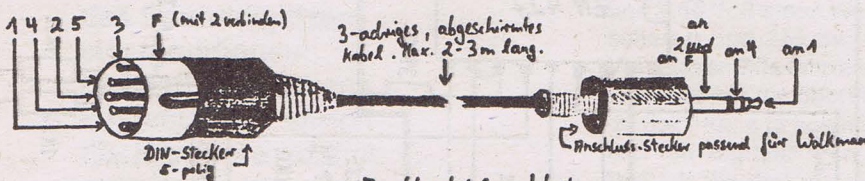 1 4 2 5 3 F (mit 2 verbinden)
3-adriges, abgeschirmtes
Kabel. Max. 2-3m lang.
an
2 und
an F
an 4
an 1
DIN-Stecker
5-polig
Anschluss-Stecker passend für Walkman